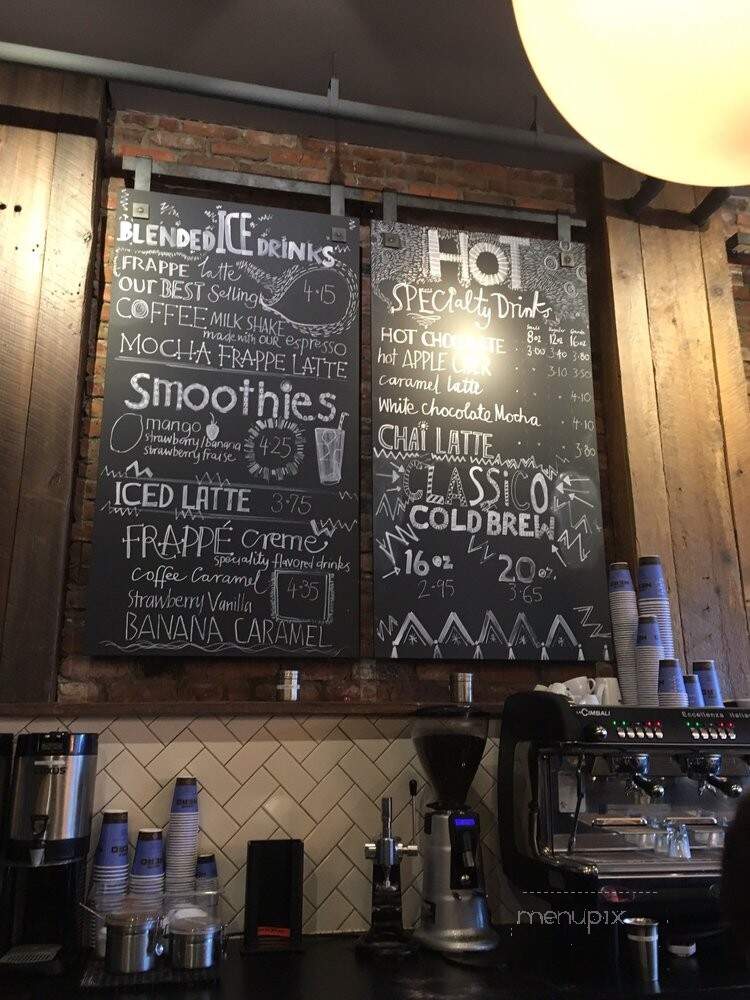 BLENDED ICE DRINKS
FRAPPE latte
OUR BEST Selling
4.15
COFFEE MILK SHAKE
made with OUR espresso
MOCHA FRAPPE LATTE
Smoothies
mango
strawberry/banana
strawberry fraise
4.25
ICED LATTE 3.75
FRAPPÉ creme
speciality flavored drinks
coffee Caramel
4.35
Strawberry Vanilla
BANANA CARAMEL
HOT
SPECialty Drinks
8oz 12oz 16oz
HOT CHOCOLATE 3.00 3.40 3.80
hot APPLE 3.10 3.50
caramel latte 4.10
White chocolate Mocha 4.10
CHAI LATTE 3.80
CLASSICO
COLD BREW
16oz 20oz.
2.95 3.65
LACIMBALI
Eccellenza Italia
menupix